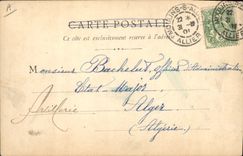 CARTE POSTALE
Ce côté est exclusivement réservé à l'adresse
ALLIER
Monsieur Bachelet, officier d'Administration
Etat Major
Artillerie
Alger
(Algérie)